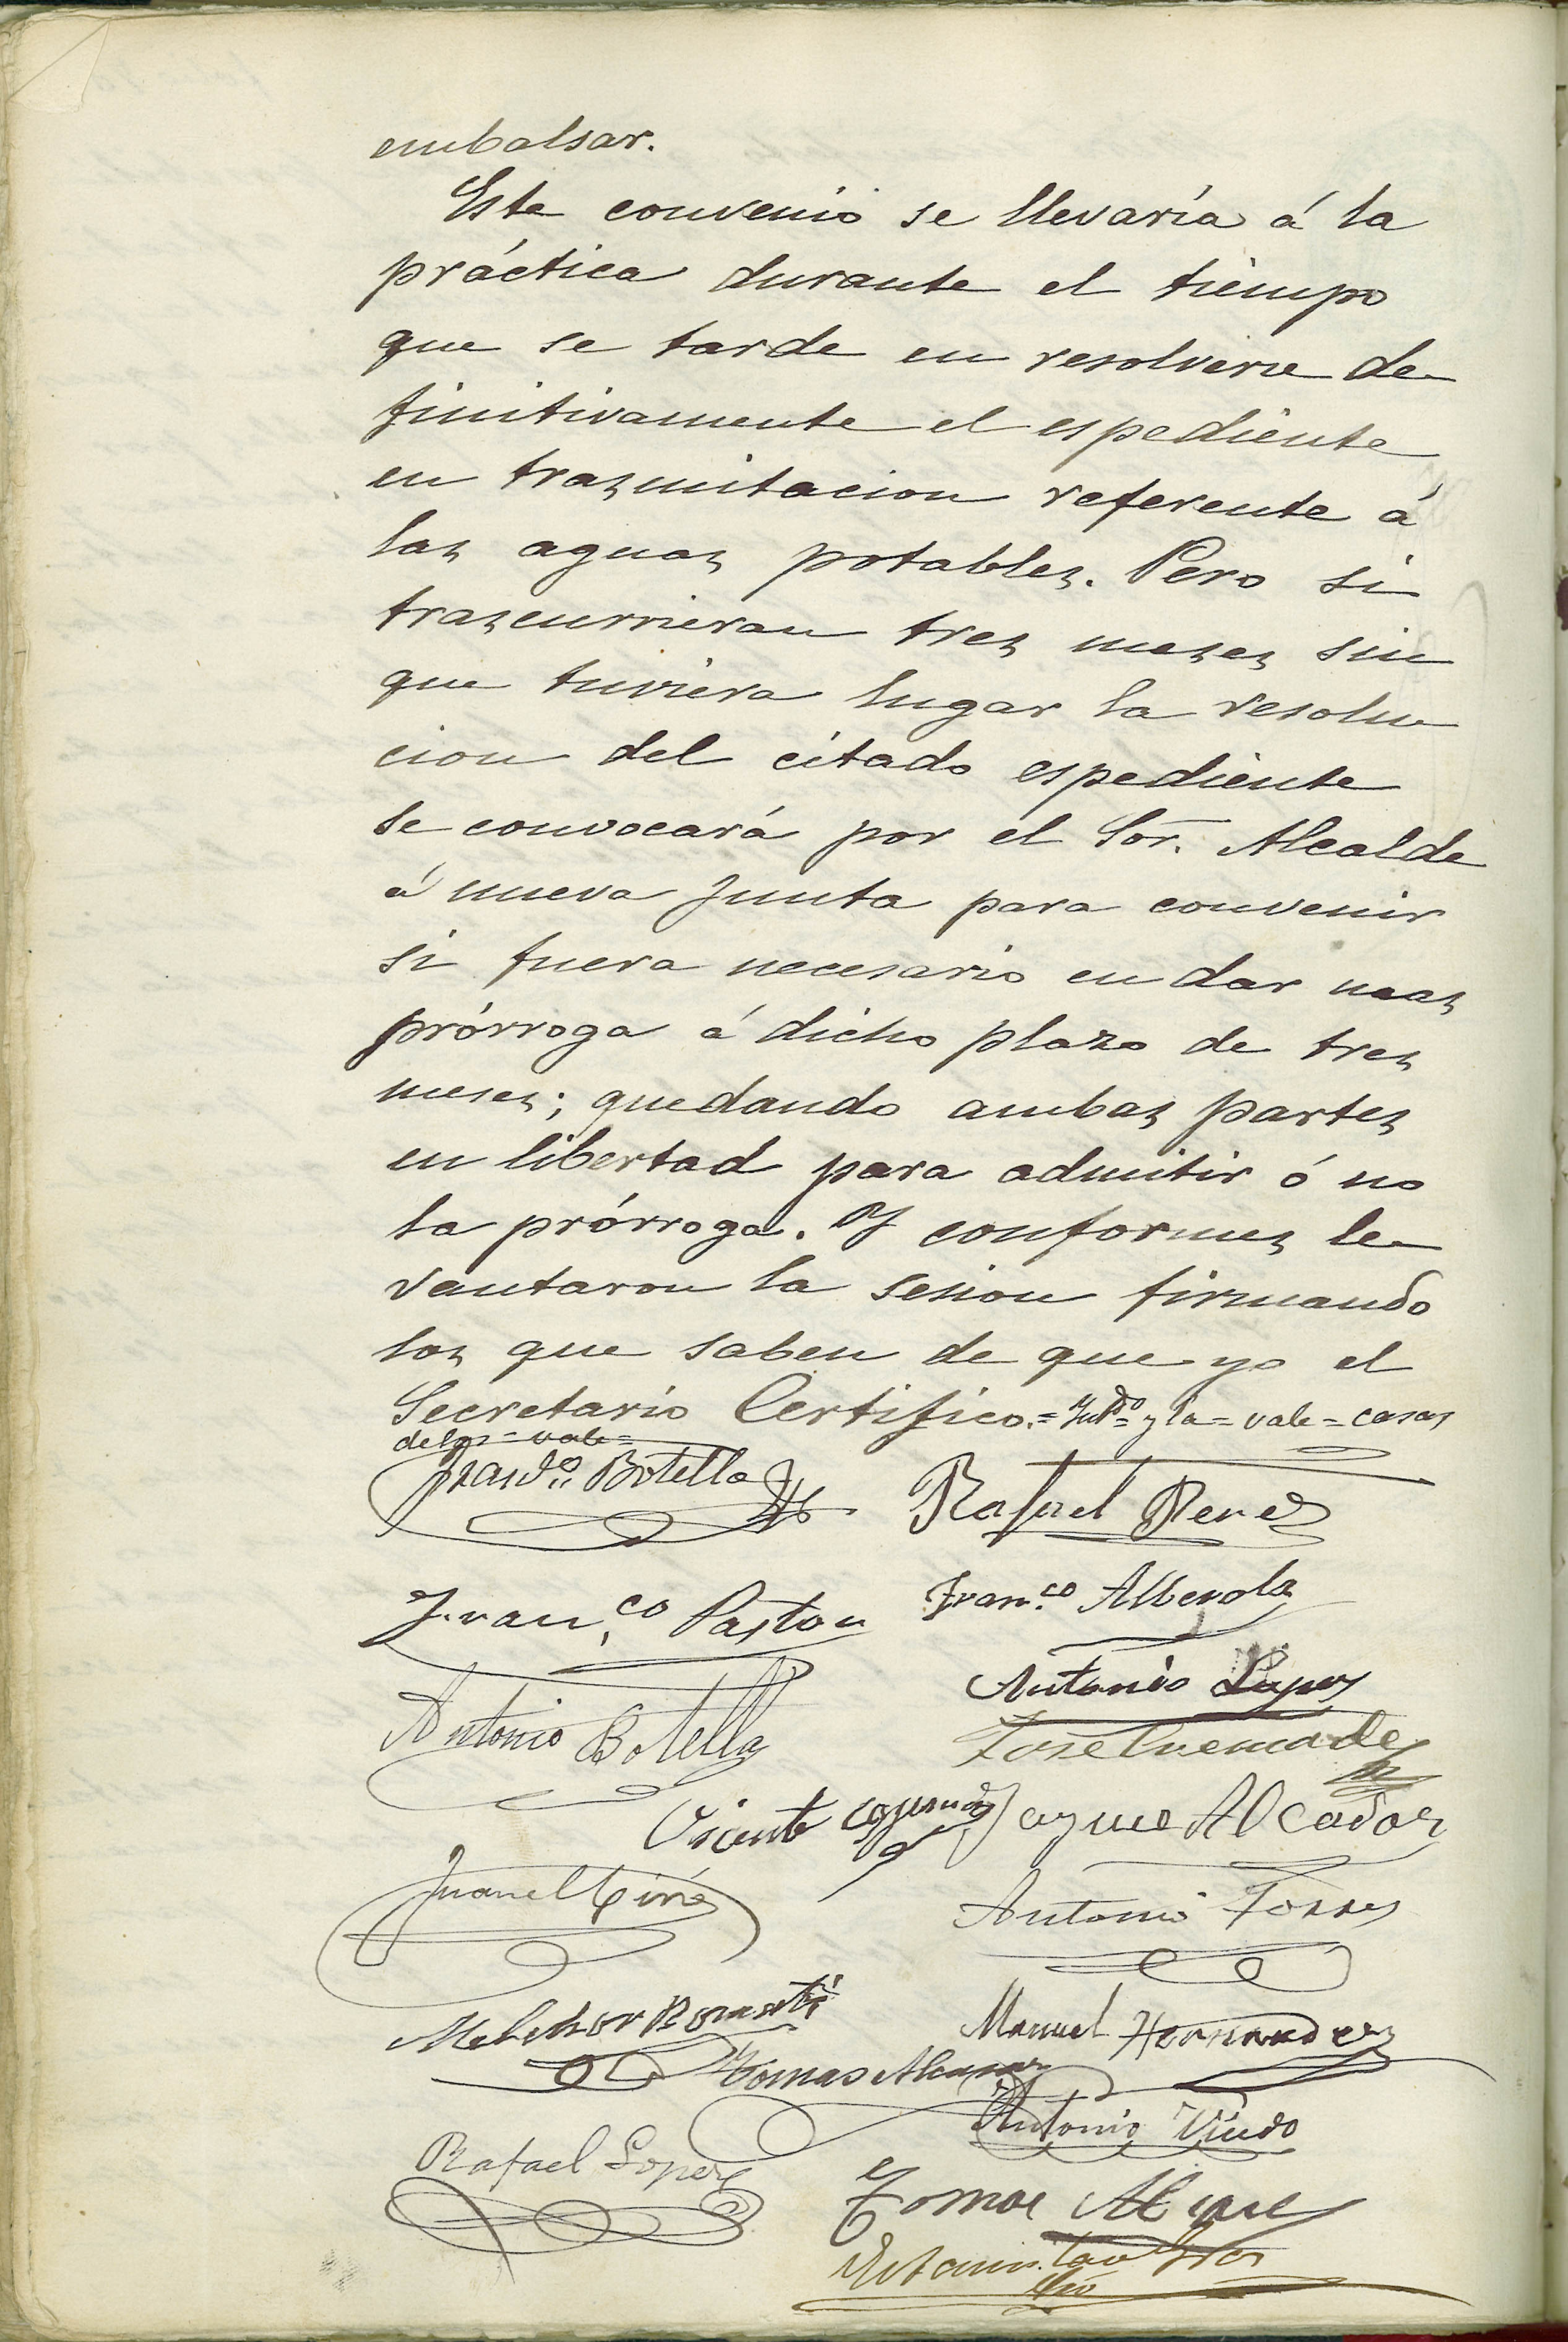 embalsar.
Este convenio se llevaría á la
práctica durante el tiempo
que se tarde en resolverse de-
finitivamente el espediente
en trasmitacion referente á
las aguas potables. Pero si
trascurrieran tres meses sin
que tuviera lugar la resolu-
cion del citado espediente
se convocará por el Sor. Alcalde
á nueva Junta para convenir
si fuera necesario en dar mas
prórroga á dicho plazo de tres
meses; quedando ambas partes
en libertad para admitir ó no
la prórroga. Y conformes le-
vantaron la sesion firmando
los que saben de que yo el
Secretario Certifico.= Intdo= y la= vale= casas
de los= vale=
Botella
Rafael Perez
Fran.co Pastor
Fran.co Alberola
Antonio Lopez
Antonio Botella
Jose
Vicente
Jayme Alcador
Juan
Antonio Torres
Melchor
Manuel Hernandez
Tomas
Antonio
Rafael Lopez
Tomas